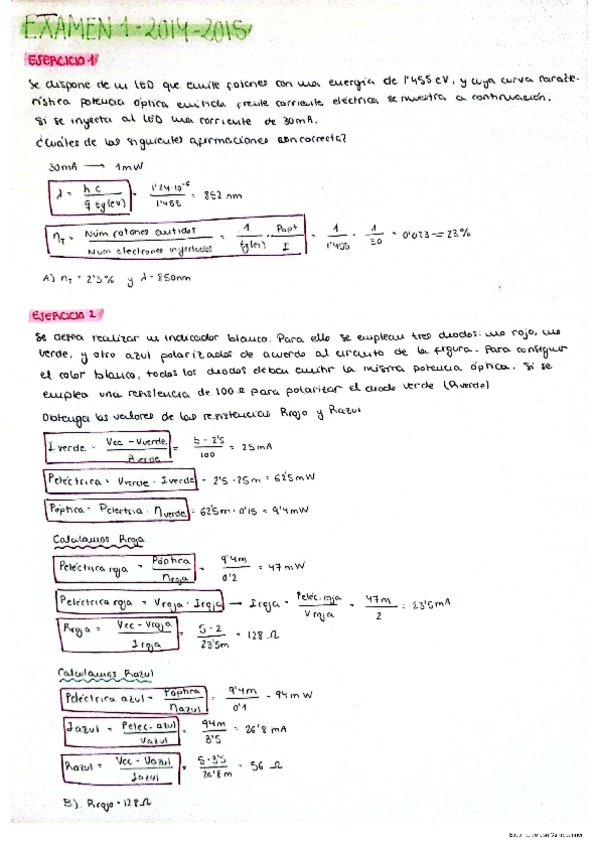 EXAMEN 1 - 2014 - 2015
EJERCICIO 1
Se dispone de un LED que emite fotones con una energía de 1'455 eV, y cuya curva caracte-
rística potencia óptica emitida frente corriente eléctrica se muestra a continuación.
Si se inyecta al LED una corriente de 30mA.
¿Cuáles de las siguientes afirmaciones son correcta?
30mA → 1mW
λ = h c / q Eg(eV) = 1'24·10⁻⁶ / 1'455 = 852 nm
ηT = Núm fotones emitidos / Núm electrones inyectados = 1 / Eg(eV) · Popt / I = 1 / 1'455 · 1 / 30 = 0'023 = 23%
A) ηT = 2'3% y λ = 850nm
EJERCICIO 2
Se desea realizar un indicador blanco. Para ello se emplean tres diodos: uno rojo, uno
verde, y otro azul polarizados de acuerdo al circuito de la figura. Para conseguir
el color blanco, todos los diodos deben emitir la misma potencia óptica. Si se
emplea una resistencia de 100 Ω para polarizar el diodo verde (Rverde)
Obtenga los valores de las resistencias Rrojo y Razul
Iverde = Vcc - Vverde / Rverde = 5 - 2'5 / 100 = 25mA
Peléctrica = Vverde · Iverde = 2'5 · 25m = 62'5mW
Póptica = Peléctrica · ηverde = 62'5m · 0'15 = 9'4mW
Calculamos Rroja
Peléctrica roja = Póptica / ηroja = 9'4m / 0'2 = 47 mW
Peléctrica roja = Vroja · Iroja → Iroja = Peléc. roja / Vroja = 47m / 2 = 23'5mA
Rroja = Vcc - Vroja / Iroja = 5 - 2 / 23'5m = 128 Ω
Calculamos Razul
Peléctrica azul = Póptica / ηazul = 9'4m / 0'1 = 94 mW
Iazul = Pelec. azul / Vazul = 94m / 3'5 = 26'8 mA
Razul = Vcc - Vazul / Iazul = 5 - 3'5 / 26'8m = 56 Ω
B). Rrojo = 128Ω